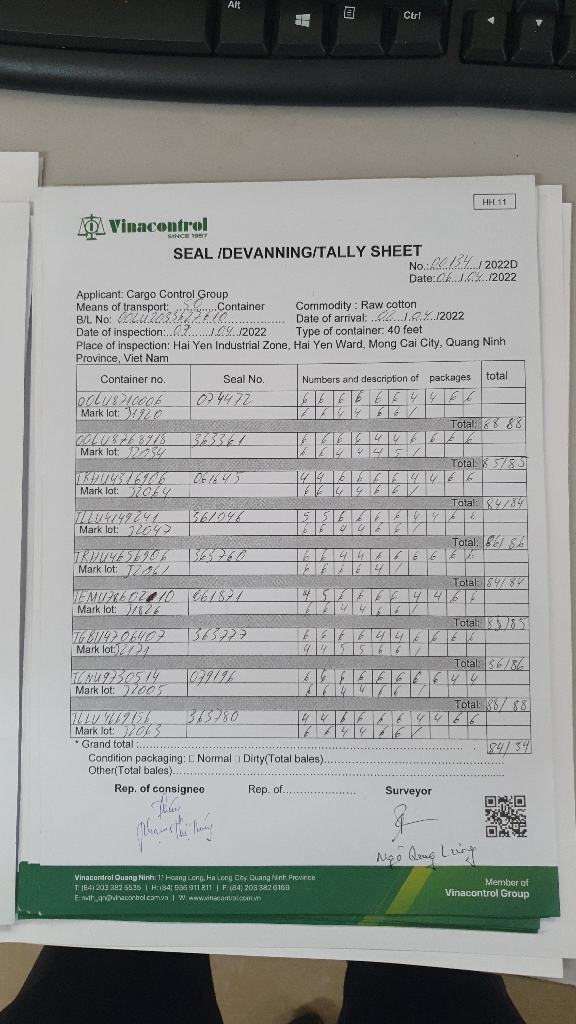 Alt
Ctrl
HH.11
Vinacontrol
SINCE 1957
SEAL /DEVANNING/TALLY SHEET
No.: 00134 / 2022D
Date: 06 / 04 /2022
Applicant: Cargo Control Group
Means of transport: 50 Container
Commodity : Raw cotton
B/L No:
Date of arrival: /04/2022
Date of inspection: 07 /04 /2022
Type of container: 40 feet
Place of inspection: Hai Yen Industrial Zone, Hai Yen Ward, Mong Cai City, Quang Ninh
Province, Viet Nam
Container no. Seal No. Numbers and description of packages total
OOLU8710006 074472 6 6 6 6 6 6 4 4 6 6
Mark lot: J1920 6 6 4 4 6 6 /
Total: 88 88
OOLU8768918 363361 6 6 6 6 4 4 6 6 6 6
Mark lot: J2054 6 6 4 4 4 5 /
Total: 85/85
TRHU4316906 061645 4 4 6 6 6 6 4 4 6 6
Mark lot: J2064 6 6 4 4 6 6 /
Total: 84/84
TLLU4149241 361046 5 5 6 6 6 6 4 4 6 6
Mark lot: J2047 6 6 4 4 6 6 /
Total: 86/86
TRHU4656906 363760 6 6 4 4 6 6 6 6 6 6
Mark lot: J2061 6 6 6 6 4 /
Total: 84/84
061871 4 5 6 6 6 6 4 4 6 6
Mark lot: J1826 6 6 4 4 6 6 /
Total: 85/85
363777 6 6 6 6 4 4 6 6 6 6
Mark lot: J2171 4 4 5 5 6 6 /
Total: 86/86
TCNU9730514 079196 6 6 6 6 6 6 6 6 4 4
Mark lot: J2005 6 6 4 4 6 6 /
Total: 88/ 88
TLLU4669156 363780 4 4 6 6 6 6 4 4 6 6
Mark lot: J2063 6 6 4 4 6 6 /
* Grand total : 84/84
Condition packaging: □ Normal □ Dirty(Total bales)
Other(Total bales)
Rep. of consignee Rep. of Surveyor
Ngô Quang Lương
Vinacontrol Quang Ninh: 11 Hoang Long, Ha Long City, Quang Ninh Province
T: (84) 203 382 5536 | H: (84) 936 911 811 | F: (84) 203 382 6169
E: nvth_qn@vinacontrol.com.vn | W: www.vinacontrol.com.vn
Member of
Vinacontrol Group